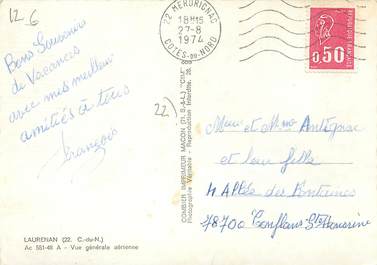 12 6
22 MERDRIGNAC
18H15
27-8
1974
COTES-DU-NORD
0,50
Bons Souvenirs
de Vacances
avec mes meilleures
amitiés à tous
François
22)
COMBIER IMPRIMEUR MACON (71. S.-&-L.) "CIM"
Photographie Véritable - Reproduction Interdite.
Mr et Mme Antignac
et leur fille
4 Allée des Fontaines
78700 Conflans Ste Honorine
LAURENAN (22. C.-du-N.)
Ac 551-48 A - Vue générale aérienne